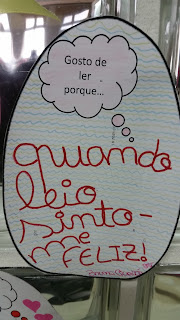 Gosto de
ler
porque...
quando
leio
sinto-
me FELIZ!